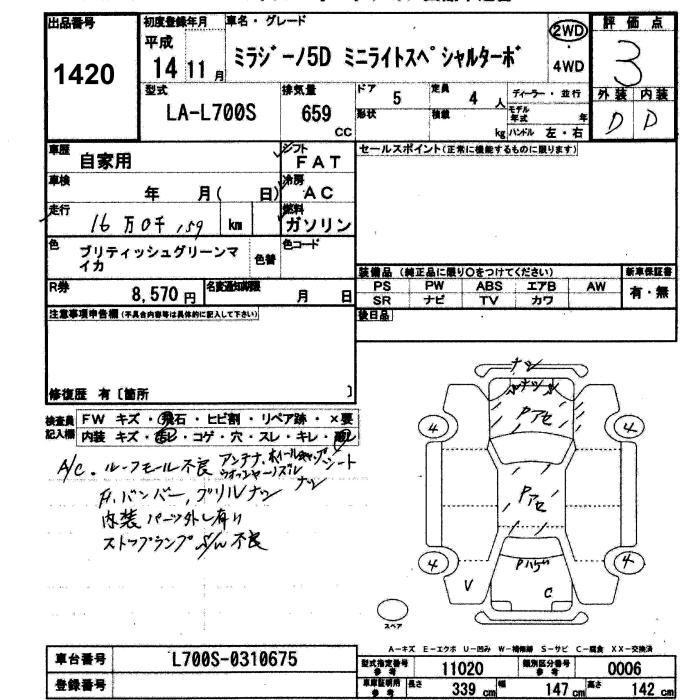 出品番号
1420
初度登録年月
平成
14 11 月
車名・グレード
ミラジーノ5D ミニライトスペシャルターボ
2WD
4WD
評価点
3
外装 内装
D D
型式
LA-L700S
排気量
659
CC
ドア
5
定員
4 人
ディーラー・並行
形状
積載
kg
モデル年式 年
ハンドル 左・右
車歴
自家用
シフト
FAT
車検
年 月( 日)
冷房
AC
走行
16 万 0千,159 km
燃料
ガソリン
色
ブリティッシュグリーンマイカ
色替
色コード
R券
8,570 円
名変通知期限
月 日
セールスポイント(正常に機能するものに限ります)
装備品(純正品に限り○をつけてください)
PS PW ABS エアB AW
SR ナビ TV カワ
新車保証書
有・無
後日品
注意事項申告欄(不具合内容等は具体的に記入して下さい)
修復歴 有〔箇所 〕
検査員記入欄
FW キズ・飛石・ヒビ割・リペア跡・×要
内装 キズ・・コゲ・穴・スレ・キレ・
A/C. ルーフモール不良 アンテナ、ホイールキャップ シート
ウオッシャーノズル ナシ
F.バンパー,グリルナシ
内装パーツ外し有り
ストップランプ 不良
ナシ
ナシ
Pアセ
Pアセ
Pハゲ
4 4
4 4
V
C
スペア
A-キズ E-エクボ U-凹み W-補修跡 S-サビ C-腐食 XX-交換済
車台番号
L700S-0310675
登録番号
型式指定番号 参考
11020
類別区分番号 参考
0006
車庫証明用 参考
長さ 339 cm
幅 147 cm
高さ 142 cm